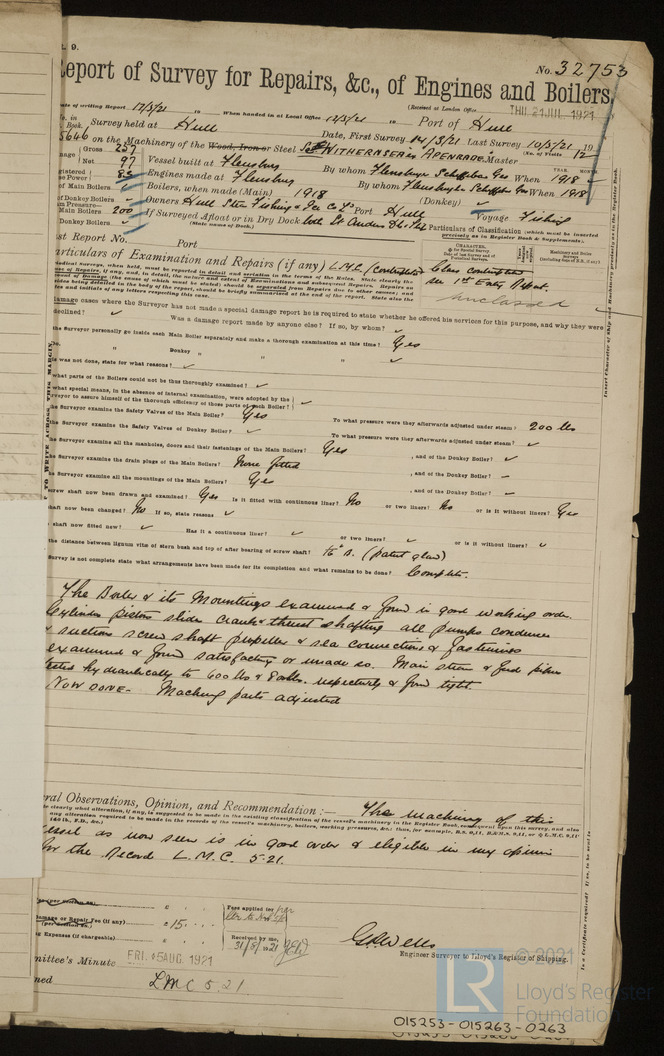 No. 32753
Report of Survey for Repairs, &c., of Engines and Boilers.
Date of writing Report 17/5/21 19 When handed in at Local Office 17/5/21 19 (Received at London Office THU 21 JUL 1921
Survey held at Hull Date, First Survey 14/3/21 Last Survey 10/5/21 19 Port of Hull
5646 on the Machinery of the Wood, Iron or Steel WITHERNSEA ex APENRADE Master (No. of Visits 12
Gross 257
Net 97 Vessel built at Flensburg By whom Flensburger Schiffsbau Ges When 1918
Engines made at Flensburg By whom Flensburger Schiffsb Ges When 1918
of Main Boilers Boilers, when made (Main) 1918 (Donkey)
of Donkey Boilers Owners Hull Stm Fishing & Ice Co Ld Port Hull Voyage Fishing
Main Boilers 200 If Surveyed Afloat or in Dry Dock both St Andrews Dk
Donkey Boilers (State name of Dock.)
Particulars of Classification (which must be inserted precisely as in Register Book & Supplements).
Last Report No. Port
Particulars of Examination and Repairs (if any) L.M.C. (contemplated)
Class contemplated
see 1st Entry Report.
enclosed
Insert Character of Ship and Machinery precisely as in the Register Book.
damage cases where the Surveyor has not made a special damage report he is required to state whether he offered his services for this purpose, and why they were
declined? ✓ Was a damage report made by anyone else? If so, by whom? ✓
the Surveyor personally go inside each Main Boiler separately and make a thorough examination at this time? Yes
" Donkey " " " ✓
was not done, state for what reasons? ✓
what parts of the Boilers could not be thus thoroughly examined? ✓
what special means, in the absence of internal examination, were adopted by the
Surveyor to assure himself of the thorough efficiency of those parts of each Boiler? ✓
the Surveyor examine the Safety Valves of the Main Boiler? Yes To what pressure were they afterwards adjusted under steam? 200 lbs
the Surveyor examine the Safety Valves of Donkey Boiler? ✓ To what pressure were they afterwards adjusted under steam? ✓
the Surveyor examine all the manholes, doors and their fastenings of the Main Boilers? Yes , and of the Donkey Boiler? ✓
the Surveyor examine the drain plugs of the Main Boilers? None fitted , and of the Donkey Boiler? ✓
the Surveyor examine all the mountings of the Main Boilers? Yes , and of the Donkey Boiler? ✓
screw shaft now been drawn and examined? Yes Is it fitted with continuous liner? No or two liners? No or is it without liners? Yes
shaft now been changed? No If so, state reasons ✓
shaft now fitted new? ✓ Has it a continuous liner? ✓ or two liners? ✓ or is it without liners? ✓
the distance between lignum vitæ of stern bush and top of after bearing of screw shaft? (patent gland)
Survey is not complete state what arrangements have been made for its completion and what remains to be done? Complete.
The Boiler & its Mountings examined & found in good working order.
Cylinders pistons slides crank & thrust shafting all pumps condenser
& suctions screw shaft propeller & sea connections & fastenings
examined & found satisfactory or made so. Main steam & feed pipes
tested hydraulically to 600 lbs & 800 lbs. respectively & found tight.
NOW DONE- Machinery parts adjusted
General Observations, Opinion, and Recommendation:— The machinery of this
vessel as now seen is in good order & eligible in my opinion
for the Record L.M.C. 5.21.
Damage or Repair Fee (if any) £ 15
(per Section 29.)
Expenses (if chargeable) £
Fees applied for
Received by me,
31/8/1921
Engineer Surveyor to Lloyd's Register of Shipping.
Committee's Minute FRI. 5 AUG. 1921
LMC 5.21
© 2021
LR
Lloyd's Register
Foundation
015253-015263-0263